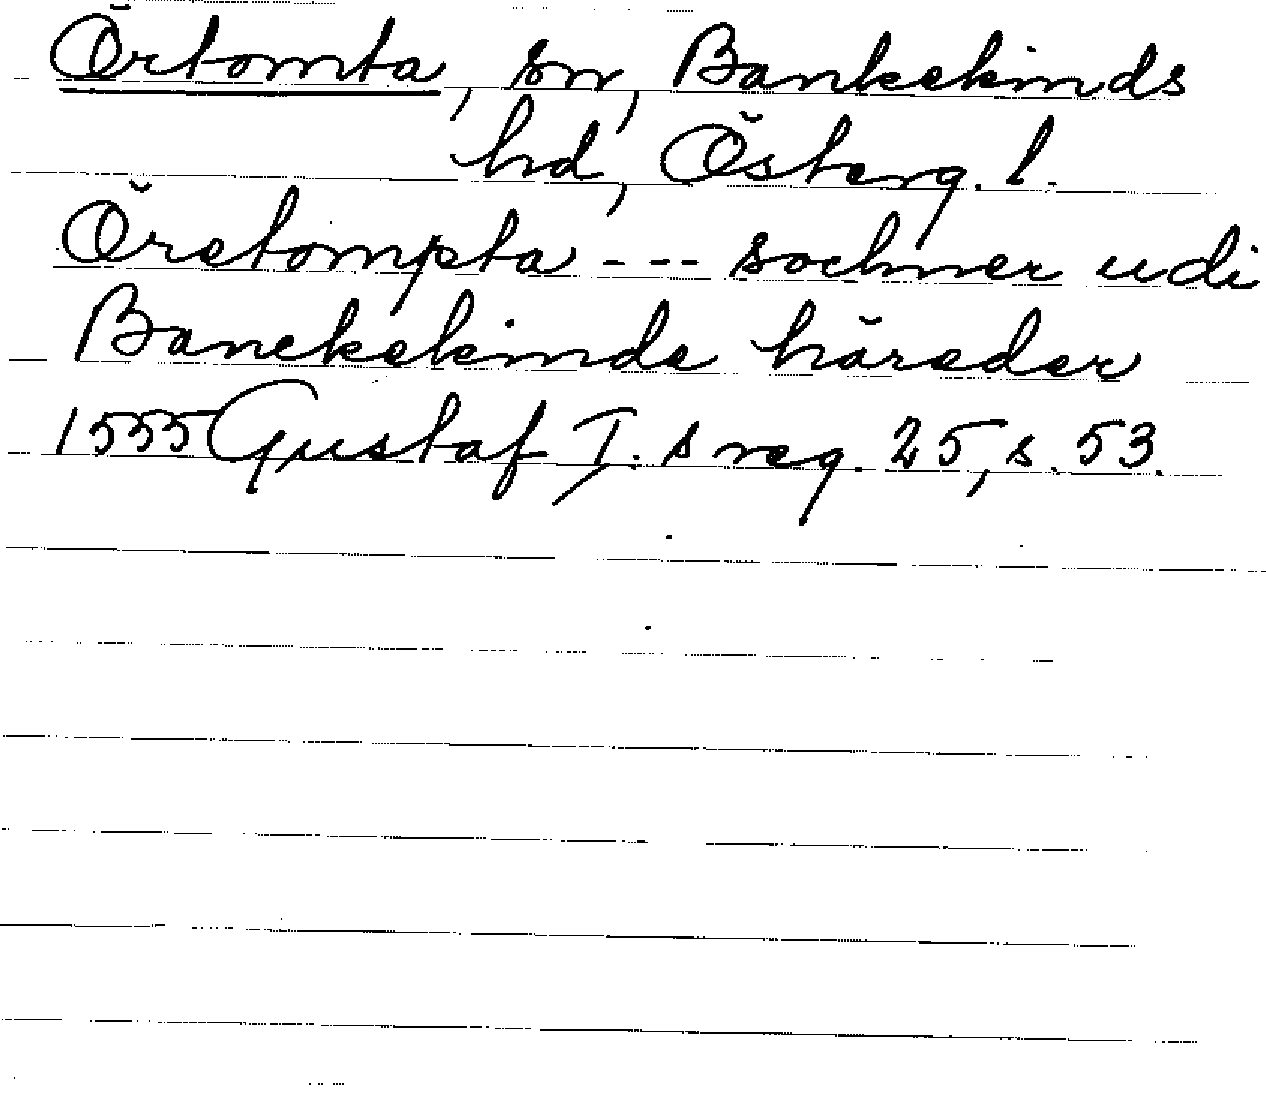 Örtomta, sn, Bankekinds
hd, Österg. l.
Öretompta --- sochner udi
Banckekinde häreder
1555 Gustaf I. s reg. 25, s. 53.